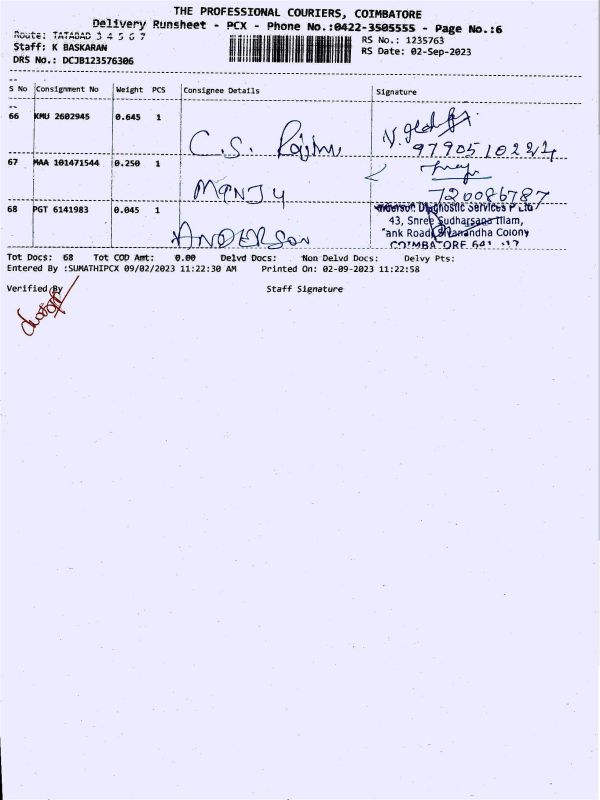 THE PROFESSIONAL COURIERS, COIMBATORE
Delivery Runsheet - PCX - Phone No.:0422-3505555 - Page No.:6
Route: TATABAD 3 4 5 6 7
RS No.: 1235763
Staff: K BASKARAN
RS Date: 02-Sep-2023
DRS No.: DCJB123576306
S No Consignment No Weight PCS Consignee Details Signature
66 KMU 2602945 0.645 1 C.S.
67 MAA 101471544 0.250 1 MANJU
68 PGT 6141983 0.045 1 ANDERSON
Diagnostic Services P Ltd
43, Shree Sudharsana
Road, Colony
Tot Docs: 68 Tot COD Amt: 0.00 Delvd Docs: Non Delvd Docs: Delvy Pts:
Entered By :SUMATHIPCX 09/02/2023 11:22:30 AM Printed On: 02-09-2023 11:22:58
Verified By Staff Signature